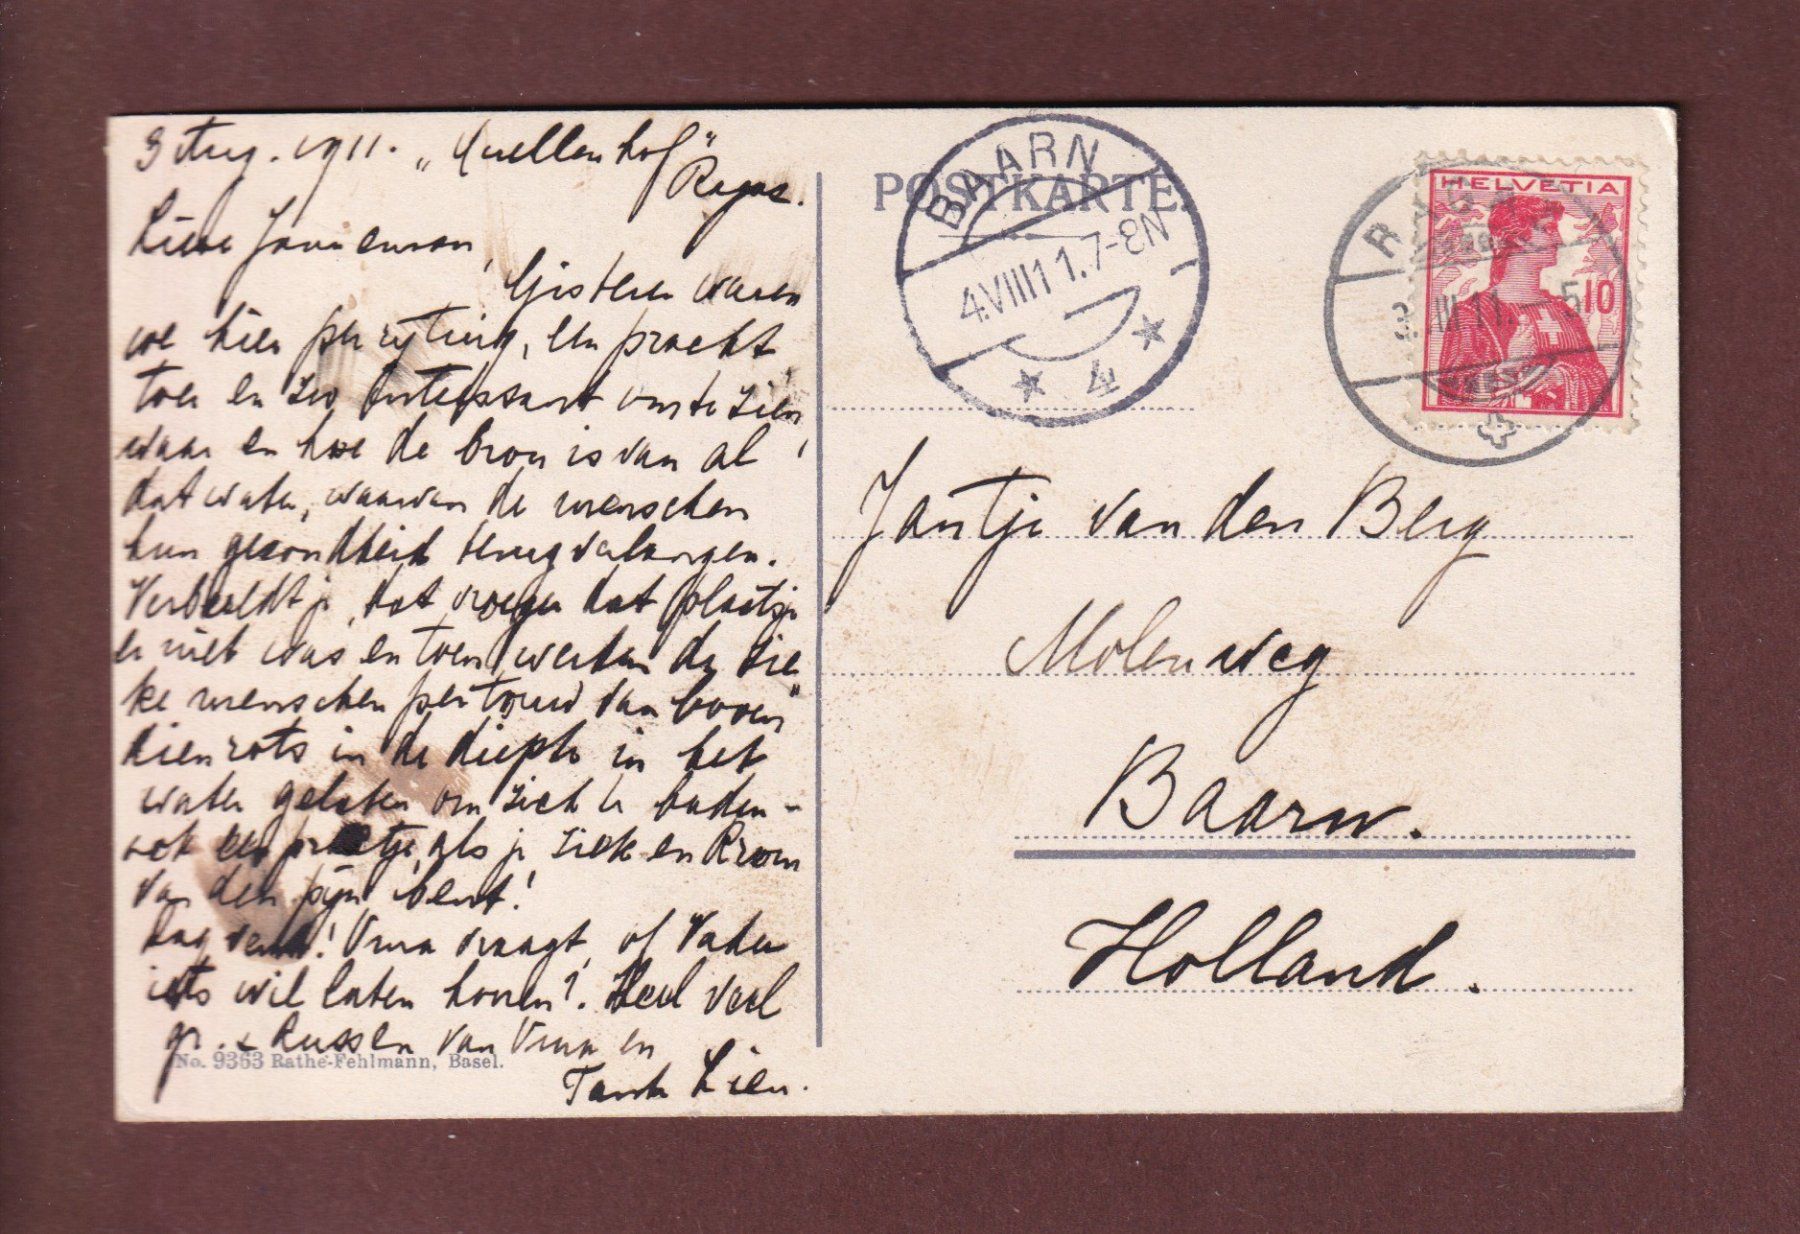 3 Aug. 1911. „Quellenhof"
Ragaz.
Lieve Janneman,
Gisteren waren
we hier per rijtuig, een pracht
toer en zoo interessant om te zien
waar en hoe de bron is van al
dat water, waarvan de menschen
hun gezondheid terug verlangen.
Verbeeldt je, dat vroeger dat plaatsje
er niet was en toen werden de zie
ke menschen per touw van boven
dien rots in de diepte in het
water gelaten om zich te baden -
ook een pretje, als je ziek en krom
van den pijn bent!
Dag vent! Oma vraagt, of Vader
iets wil laten hooren?. Heel veel
gr. & kussen van Oma en
Tante Lien.
No. 9363 Rathe-Fehlmann, Basel.
POSTKARTE.
BAARN
4.VIII11 1.7-8N
4
HELVETIA
10
RAGAZ
3.VIII 11. 5
Jantje van den Berg
Molenweg
Baarn.
Holland.